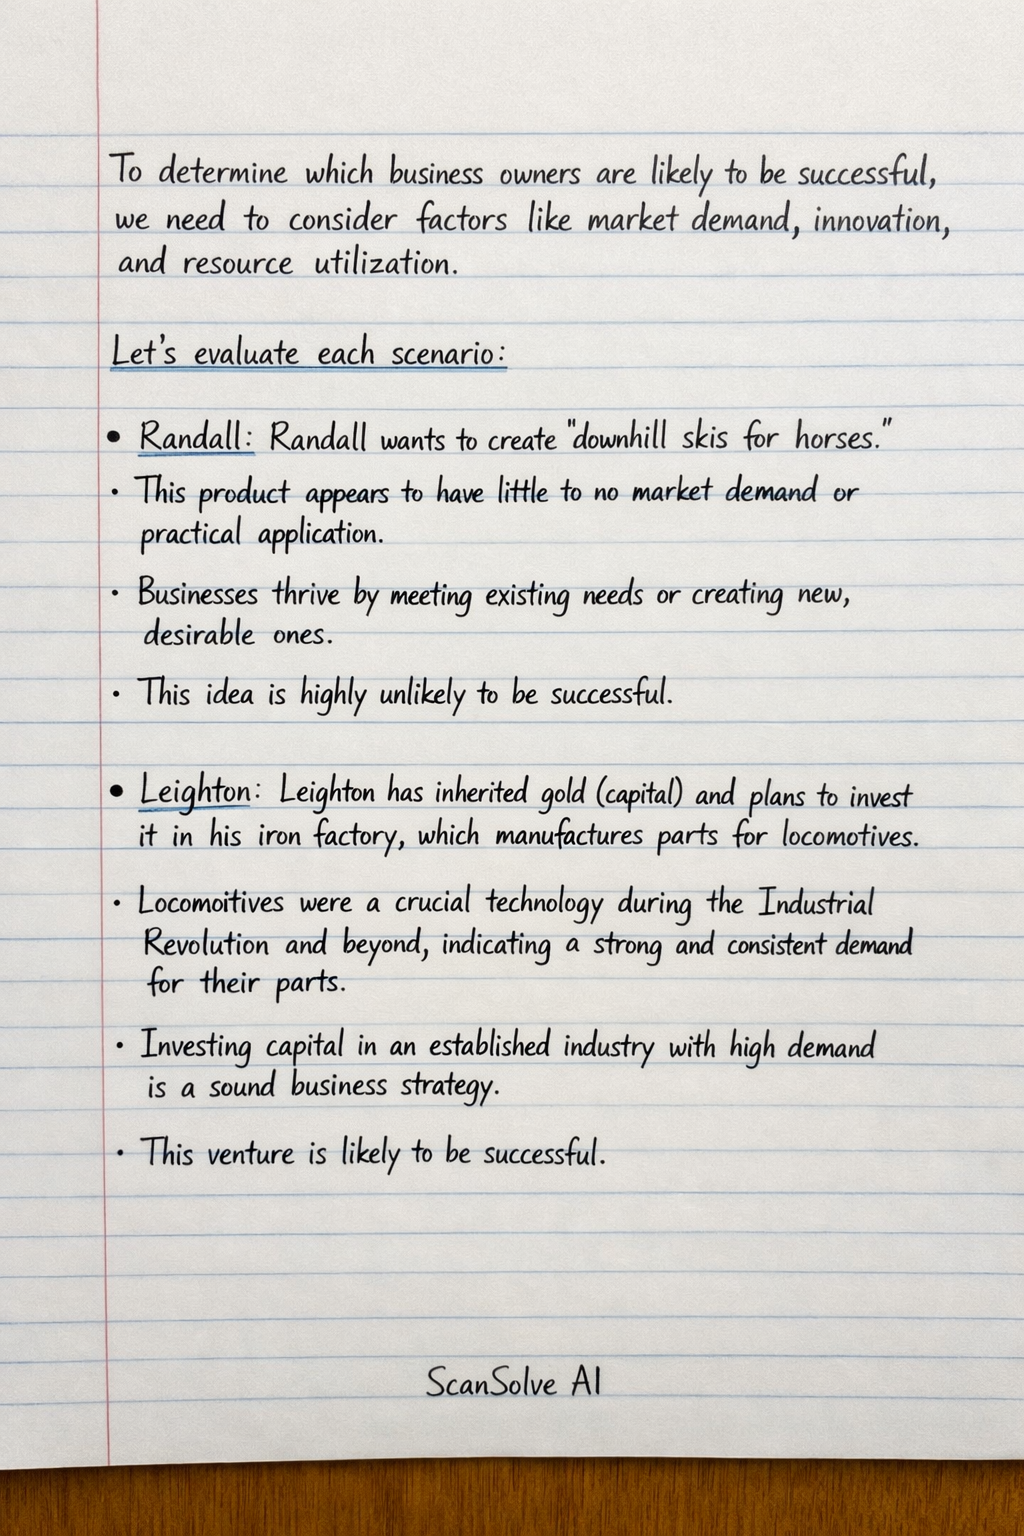 To determine which business owners are likely to be successful,
we need to consider factors like market demand, innovation,
and resource utilization.
Let's evaluate each scenario:
• Randall: Randall wants to create "downhill skis for horses."
• This product appears to have little to no market demand or
practical application.
• Businesses thrive by meeting existing needs or creating new,
desirable ones.
• This idea is highly unlikely to be successful.
• Leighton: Leighton has inherited gold (capital) and plans to invest
it in his iron factory, which manufactures parts for locomotives.
• Locomoitives were a crucial technology during the Industrial
Revolution and beyond, indicating a strong and consistent demand
for their parts.
• Investing capital in an established industry with high demand
is a sound business strategy.
• This venture is likely to be successful.
ScanSolve AI